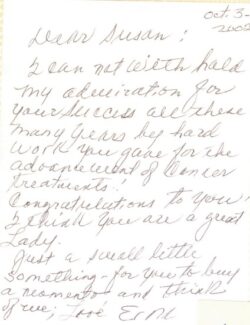 Oct. 3-
200
Dear Susan!
I can not with hold
my admiration for
your success all these
many years by hard
work you gave for the
advancement of Cancer
treatments!
Congratulations to you!
I think you are a great
Lady.
Just a small little
something - for you to buy
a momento and think
of me; Love